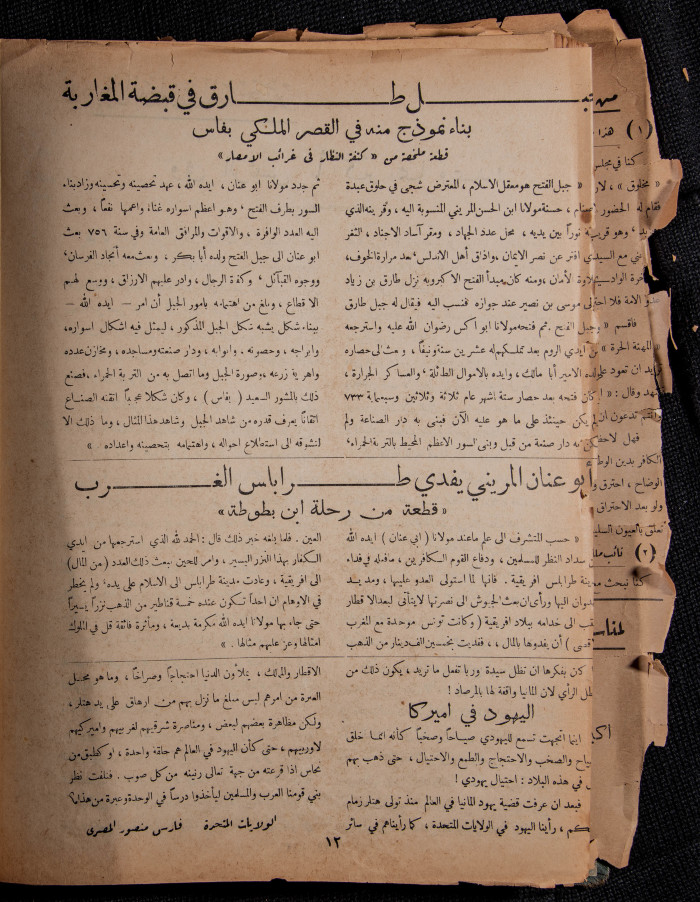 جبل طارق في قبضة المغاربة
بناء نموذج منه في القصر الملكي بفاس
قطعة ملخصة من « كتفة النظار في غرائب الامصار »
« جبل الفتح هو معقل الاسلام ، المعترض شجى في حلوق عبدة
الاصنام ، حسنة مولانا ابي الحسن المريني المنسوبة اليه ، وقربته الذي
نوراً بين يديه ، محل عدد الجهاد ، ومقر آساد الاجناد ، الثغر
الذي افتر عن نصر الايمان ، واذاق أهل الاندلس بعد مرارة الخوف ،
حلاوة الأمان ، ومنه كان مبدأ الفتح الاكبر وبه نزل طارق بن زياد
موسى بن نصير عند جوازه فنسب اليه فيقال له جبل طارق
وجبل الفتح . ثم فتحه مولانا ابو الحسن رضوان الله عليه واسترجعه
من أيدي الروم بعد تملكهم له عشرين سنة ونيفاً ، وبعث الى حصاره
ولده الامير أبا مالك ، وايده بالاموال الطائلة ، والعساكر الجرارة ،
وكان فتحه بعد حصار ستة اشهر عام ثلاثة وثلاثين وسبعماية ٧٣٣
ولم يكن حينئذ على ما هو عليه الآن فبنى به دار الصناعة ولم
يكن به دار صنعة من قبل وبنى السور الاعظم المحيط بالتربة الحمراء ،
ثم جدد مولانا ابو عنان ، ايده الله ، عهد تحصينه وتحسينه وزاد بناء
السور بطرف الفتح ، وهو اعظم اسواره غناءً واعمها نفعاً ، وبعث
اليه العدد الوافرة ، والاقوات والمرافق العامة وفي سنة ٧٥٦ بعث
ابو عنان الى جبل الفتح ولده أبا بكر ، وبعث معه أنجاد الفرسان ،
ووجوه القبائل ، وكفاة الرجال ، وادر عليهم الارزاق ، ووسع لهم
الاقطاع ، وبلغ من اهتمامه بأمور الجبل أن أمر — ايده الله —
ببناء شكل يشبه شكل الجبل المذكور ، ليمثل فيه اشكال اسواره ،
وابراجه ، وحصونه . وابوابه ، ودار صنعته ومساجده ، ومخازن عدده
واهرية زرعه ، وصورة الجبل وما اتصل به من التربة الحمراء ، فصنع
ذلك بالمشور السعيد ( بفاس ) ، وكان شكلا عجيباً اتقنه الصناع
اتقاناً يعرف قدره من شاهد الجبل وشاهد هذا المثال ، وما ذلك الا
لتشوقه الى استطلاع احواله ، واهتمامه بتحصينه واعداده . »
ابو عنان المريني يفدي طرابلس الغرب
« قطعة من رحلة ابن بطوطة »
« حسب المتشرف الى علم ما عند مولانا ( ابي عنان ) ايده الله
من سداد النظر للمسلمين ، ودفاع القوم الكافرين ، ما فعله في فداء
مدينة طرابلس افريقية . فانها لما استولى العدو عليها ، ومد يد
العدوان اليها ورأى ان بعث الجيوش الى نصرتها لا يتأتى لبعد الاقطار
كتب الى خدامه ببلاد افريقية ( وكانت تونس موحدة مع المغرب
الاقصى ) أن يفدوها بالمال ، ففديت بخمسين الف دينار من الذهب
العين . فلما بلغه خبر ذلك قال : الحمد لله الذي استرجعها من ايدي
الكفار بهذا النزر اليسير ، وامر للحين ببعث ذلك العدد ( من المال )
الى افريقية ، وعادت مدينة طرابلس الى الاسلام على يده ، ولم يخطر
في الاوهام ان احداً تكون عنده خمسة قناطير من الذهب نزراً يسيراً
حتى جاء بها مولانا ايده الله مكرمة بديعة ، ومأثرة فائقة قل في الملوك
امثالها وعز عليهم مثالها . »
كان بفكرها ان تظل سيدة وربا تفعل ما تريد ، يكون ذلك من
الرأي لان المانيا واقفة لها بالمرصاد !
اليهود في اميركا
اينما اتجهت تسمع لليهودي صياحاً وصخباً كأنه انما خلق
والصخب والاحتجاج والطمع والاحتيال ، حتى ذهب بهم
في هذه البلاد : احتيال يهودي !
فبعد ان عرفت قضية يهود المانيا في العالم منذ تولى هتلر زمام
الحكم ، رأينا اليهود في الولايات المتحدة ، كما رأيناهم في سائر
الاقطار والممالك ، يملأون الدنيا احتجاجاً وصراخاً ، وما هو محل
العبرة من امرهم ليس مبلغ ما نزل بهم من ارهاق على يد هتلر ،
ولكن مظاهرة بعضهم لبعض ، ومناصرة شرقيهم لغربيهم واميركيهم
لاوربيهم ، حتى كأن اليهود في العالم هم حلقة واحدة ، او كطبق من
نحاس اذا قرعته من جهة تعالى رنينه من كل صوب . فنلفت نظر
بني قومنا العرب والمسلمين ليأخذوا درساً في الوحدة وعبرة من هذا
الولايات المتحدة فارس منصور المصري
١٣